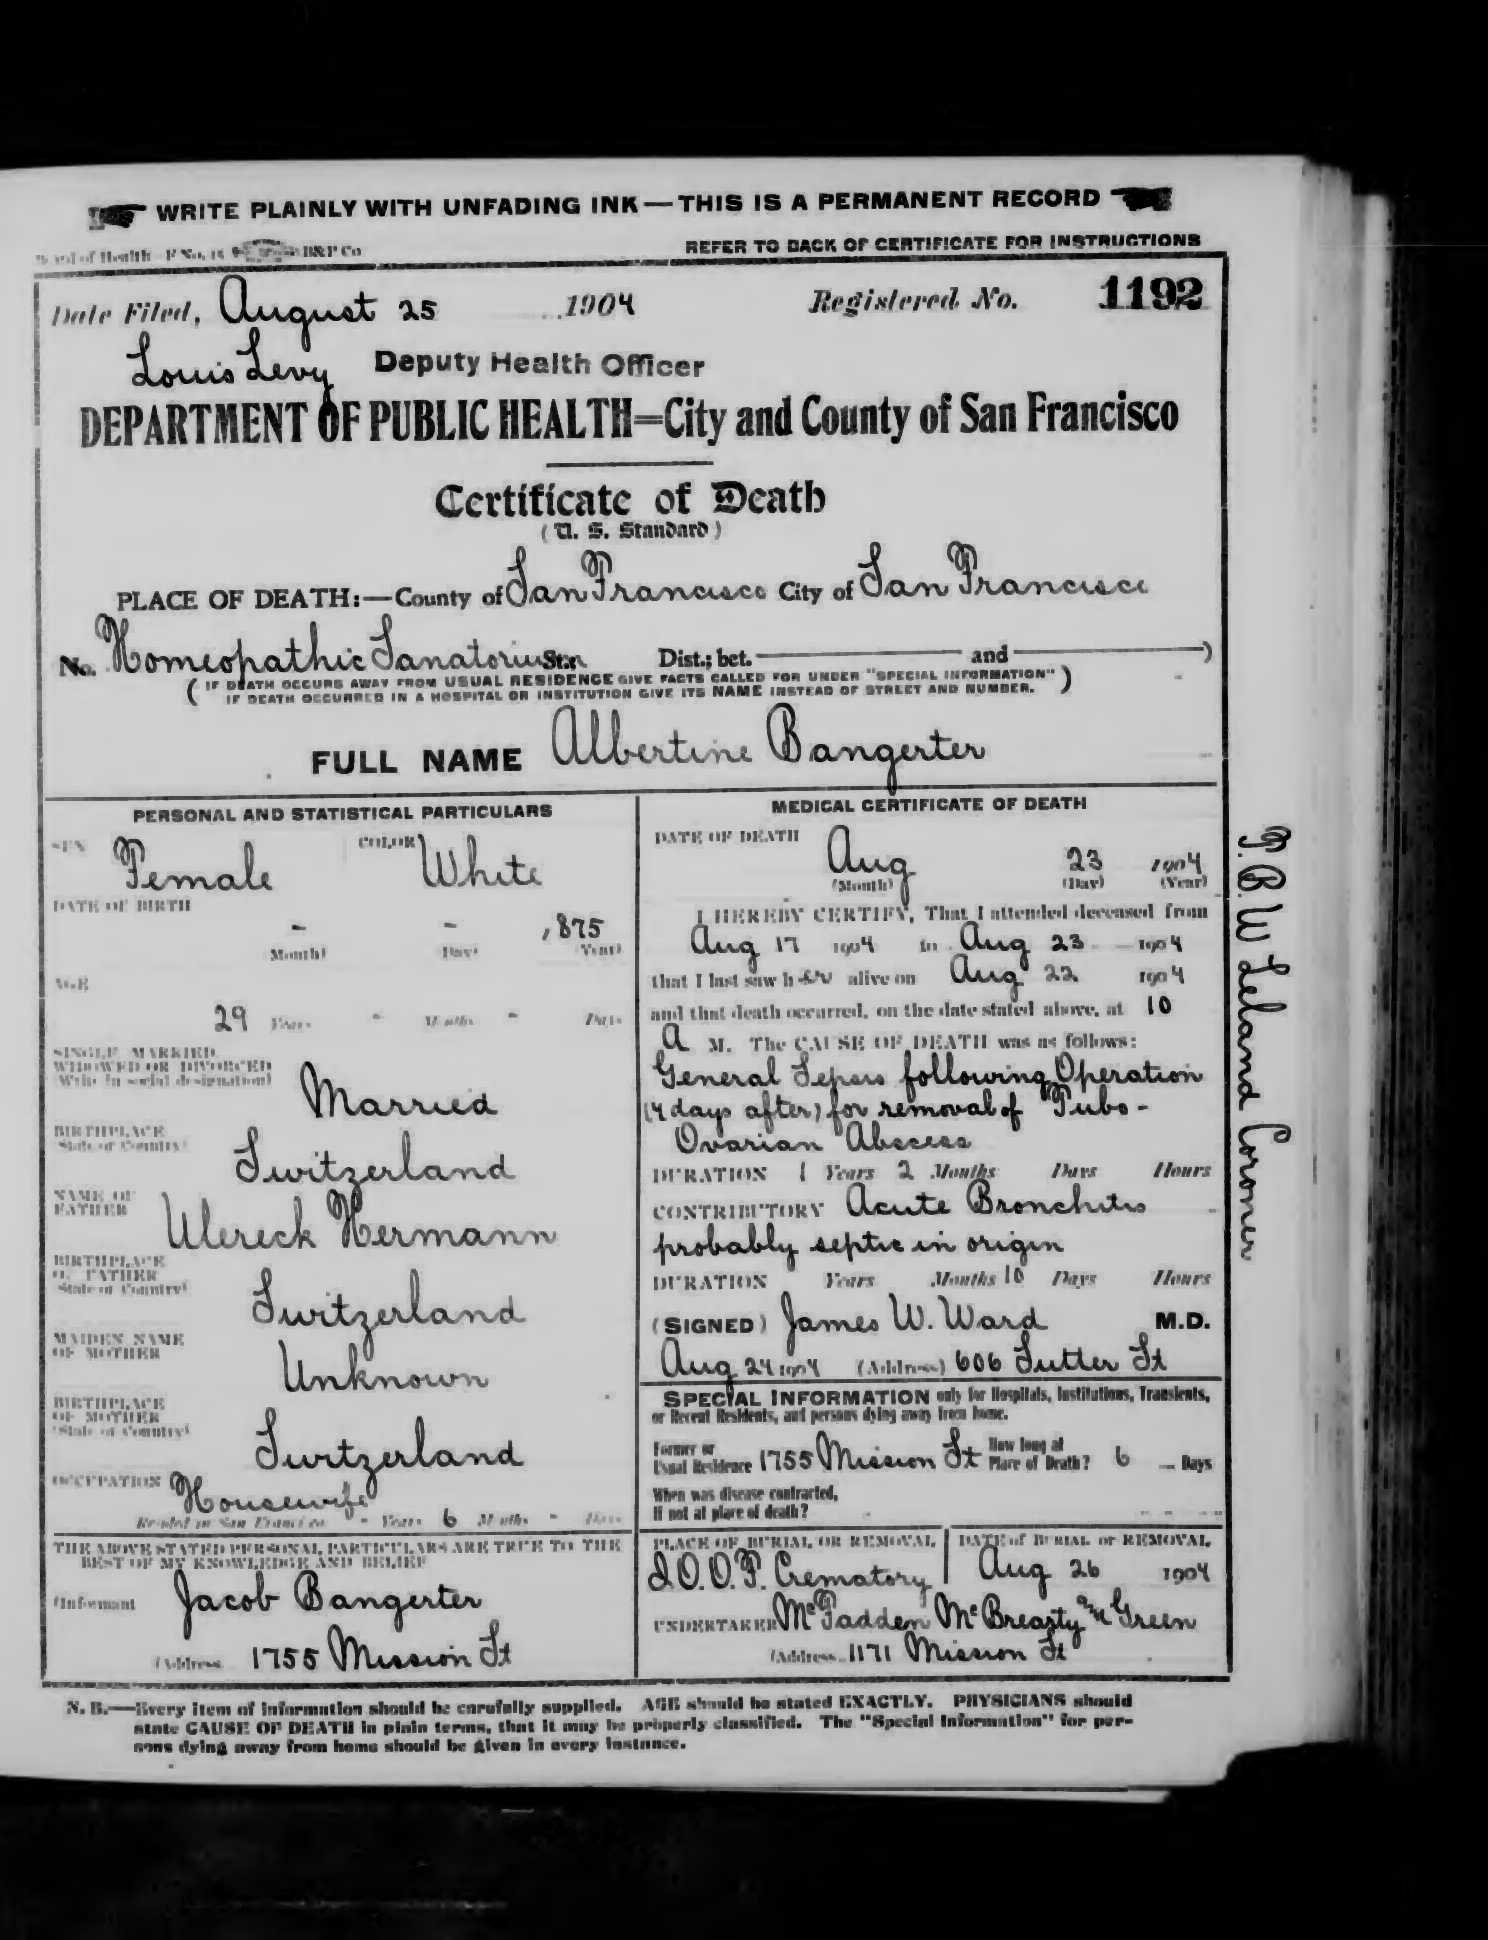 WRITE PLAINLY WITH UNFADING INK — THIS IS A PERMANENT RECORD
Board of Health—F No. 15 B&P Co
REFER TO BACK OF CERTIFICATE FOR INSTRUCTIONS
Date Filed, August 25 1904 Registered No. 1192
Louis Levy Deputy Health Officer
DEPARTMENT OF PUBLIC HEALTH=City and County of San Francisco
Certificate of Death
(U. S. Standard)
PLACE OF DEATH:—County of San Francisco City of San Francisco
No. Homeopathic Sanatorium St.; Dist.; bet. and )
( IF DEATH OCCURS AWAY FROM USUAL RESIDENCE GIVE FACTS CALLED FOR UNDER "SPECIAL INFORMATION" )
IF DEATH OCCURRED IN A HOSPITAL OR INSTITUTION GIVE ITS NAME INSTEAD OF STREET AND NUMBER.
FULL NAME Albertine Bangerter
PERSONAL AND STATISTICAL PARTICULARS
SEX Female COLOR White
DATE OF BIRTH
- - 1875
(Month) (Day) (Year)
AGE
29 Years - Months - Days
SINGLE, MARRIED,
WIDOWED OR DIVORCED
(Write in social designation)
Married
BIRTHPLACE
(State or Country)
Switzerland
NAME OF
FATHER
Ulereck Hermann
BIRTHPLACE
OF FATHER
(State or Country)
Switzerland
MAIDEN NAME
OF MOTHER
Unknown
BIRTHPLACE
OF MOTHER
(State or Country)
Switzerland
OCCUPATION Housewife
Resided in San Francisco - Years 6 Months - Days
THE ABOVE STATED PERSONAL PARTICULARS ARE TRUE TO THE
BEST OF MY KNOWLEDGE AND BELIEF
(Informant Jacob Bangerter
(Address 1755 Mission St
MEDICAL CERTIFICATE OF DEATH
DATE OF DEATH
Aug 23 1904
(Month) (Day) (Year)
I HEREBY CERTIFY, That I attended deceased from
Aug 17 1904 to Aug 23 1904
that I last saw her alive on Aug 22 1904
and that death occurred, on the date stated above, at 10
A M. The CAUSE OF DEATH was as follows:
General Sepsis following Operation
(4 days after) for removal of Tubo-
Ovarian Abscess
DURATION 1 Years 2 Months Days Hours
CONTRIBUTORY Acute Bronchitis
probably septic in origin
DURATION Years Months 10 Days Hours
(SIGNED) James W. Ward M.D.
Aug 24 1904 (Address) 606 Sutter St
SPECIAL INFORMATION only for Hospitals, Institutions, Transients,
or Recent Residents, and persons dying away from home.
Former or
Usual Residence 1755 Mission St How long at
Place of Death? 6 Days
When was disease contracted,
If not at place of death?
PLACE OF BURIAL OR REMOVAL DATE of BURIAL or REMOVAL
I.O.O.F. Crematory Aug 26 1904
UNDERTAKER McFadden McBrearty and Green
(Address 1171 Mission St
N. B.—Every item of information should be carefully supplied. AGE should be stated EXACTLY. PHYSICIANS should
state CAUSE OF DEATH in plain terms, that it may be properly classified. The "Special Information" for per-
sons dying away from home should be given in every instance.
T. B. W. Leland Coroner